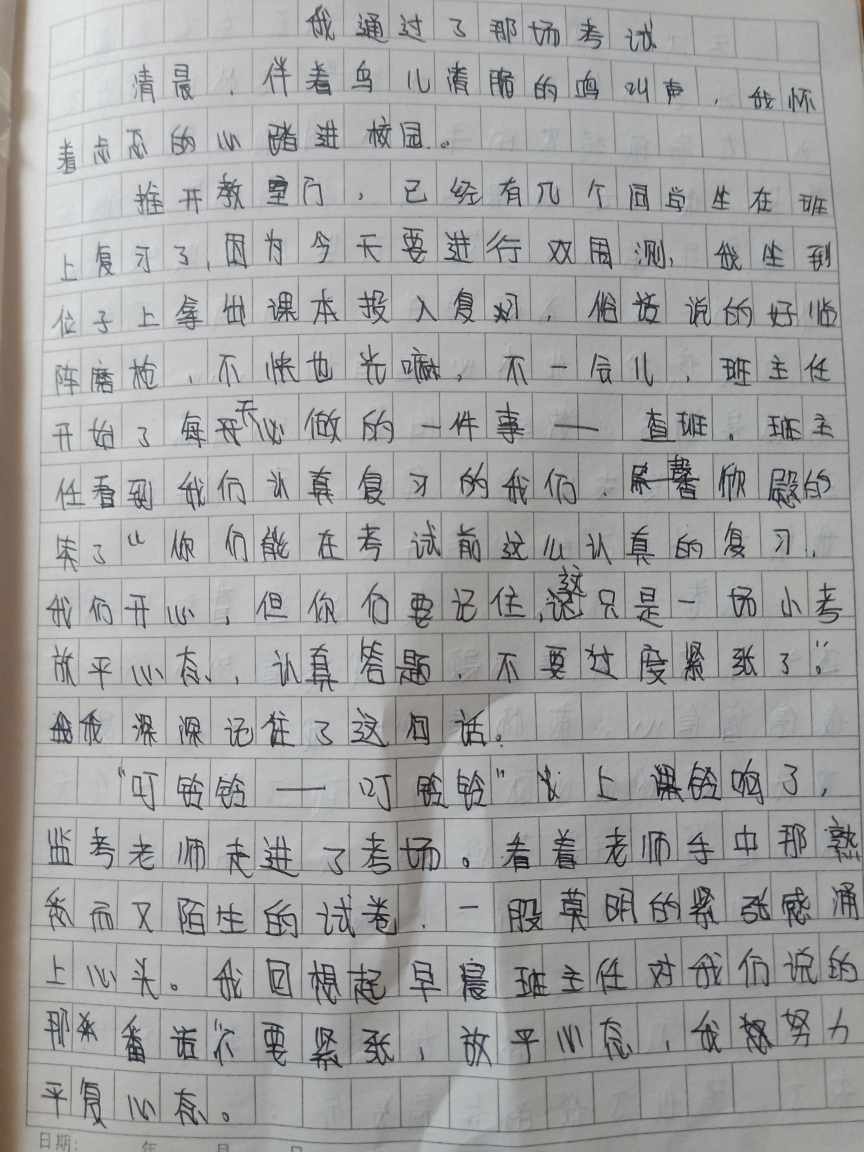 我通过了那场考试
清晨，伴着鸟儿清脆的鸣叫声，我怀
着忐忑的心踏进校园。
推开教室门，已经有几个同学生在班
上复习了，因为今天要进行双周测，我坐到
位子上拿出课本投入复习，俗话说的好临
阵磨枪，不快也光嘛，不一会儿，班主任
开始了每天必做的一件事——查班。班主
任看到我们认真复习的我们，欣慰的
笑了“你们能在考试前这么认真的复习，
我们开心，但你们要记住，这只是一场小考
放平心态，认真答题，不要过度紧张了。”
我深深记住了这句话。
“叮铃铃——叮铃铃”上课铃响了，
监考老师走进了考场。看着老师手中那熟
悉而又陌生的试卷，一股莫明的紧张感涌
上心头。我回想起早晨班主任对我们说的
那番话“不要紧张，放平心态，我努力
平复心态。
日期： 年 月 日